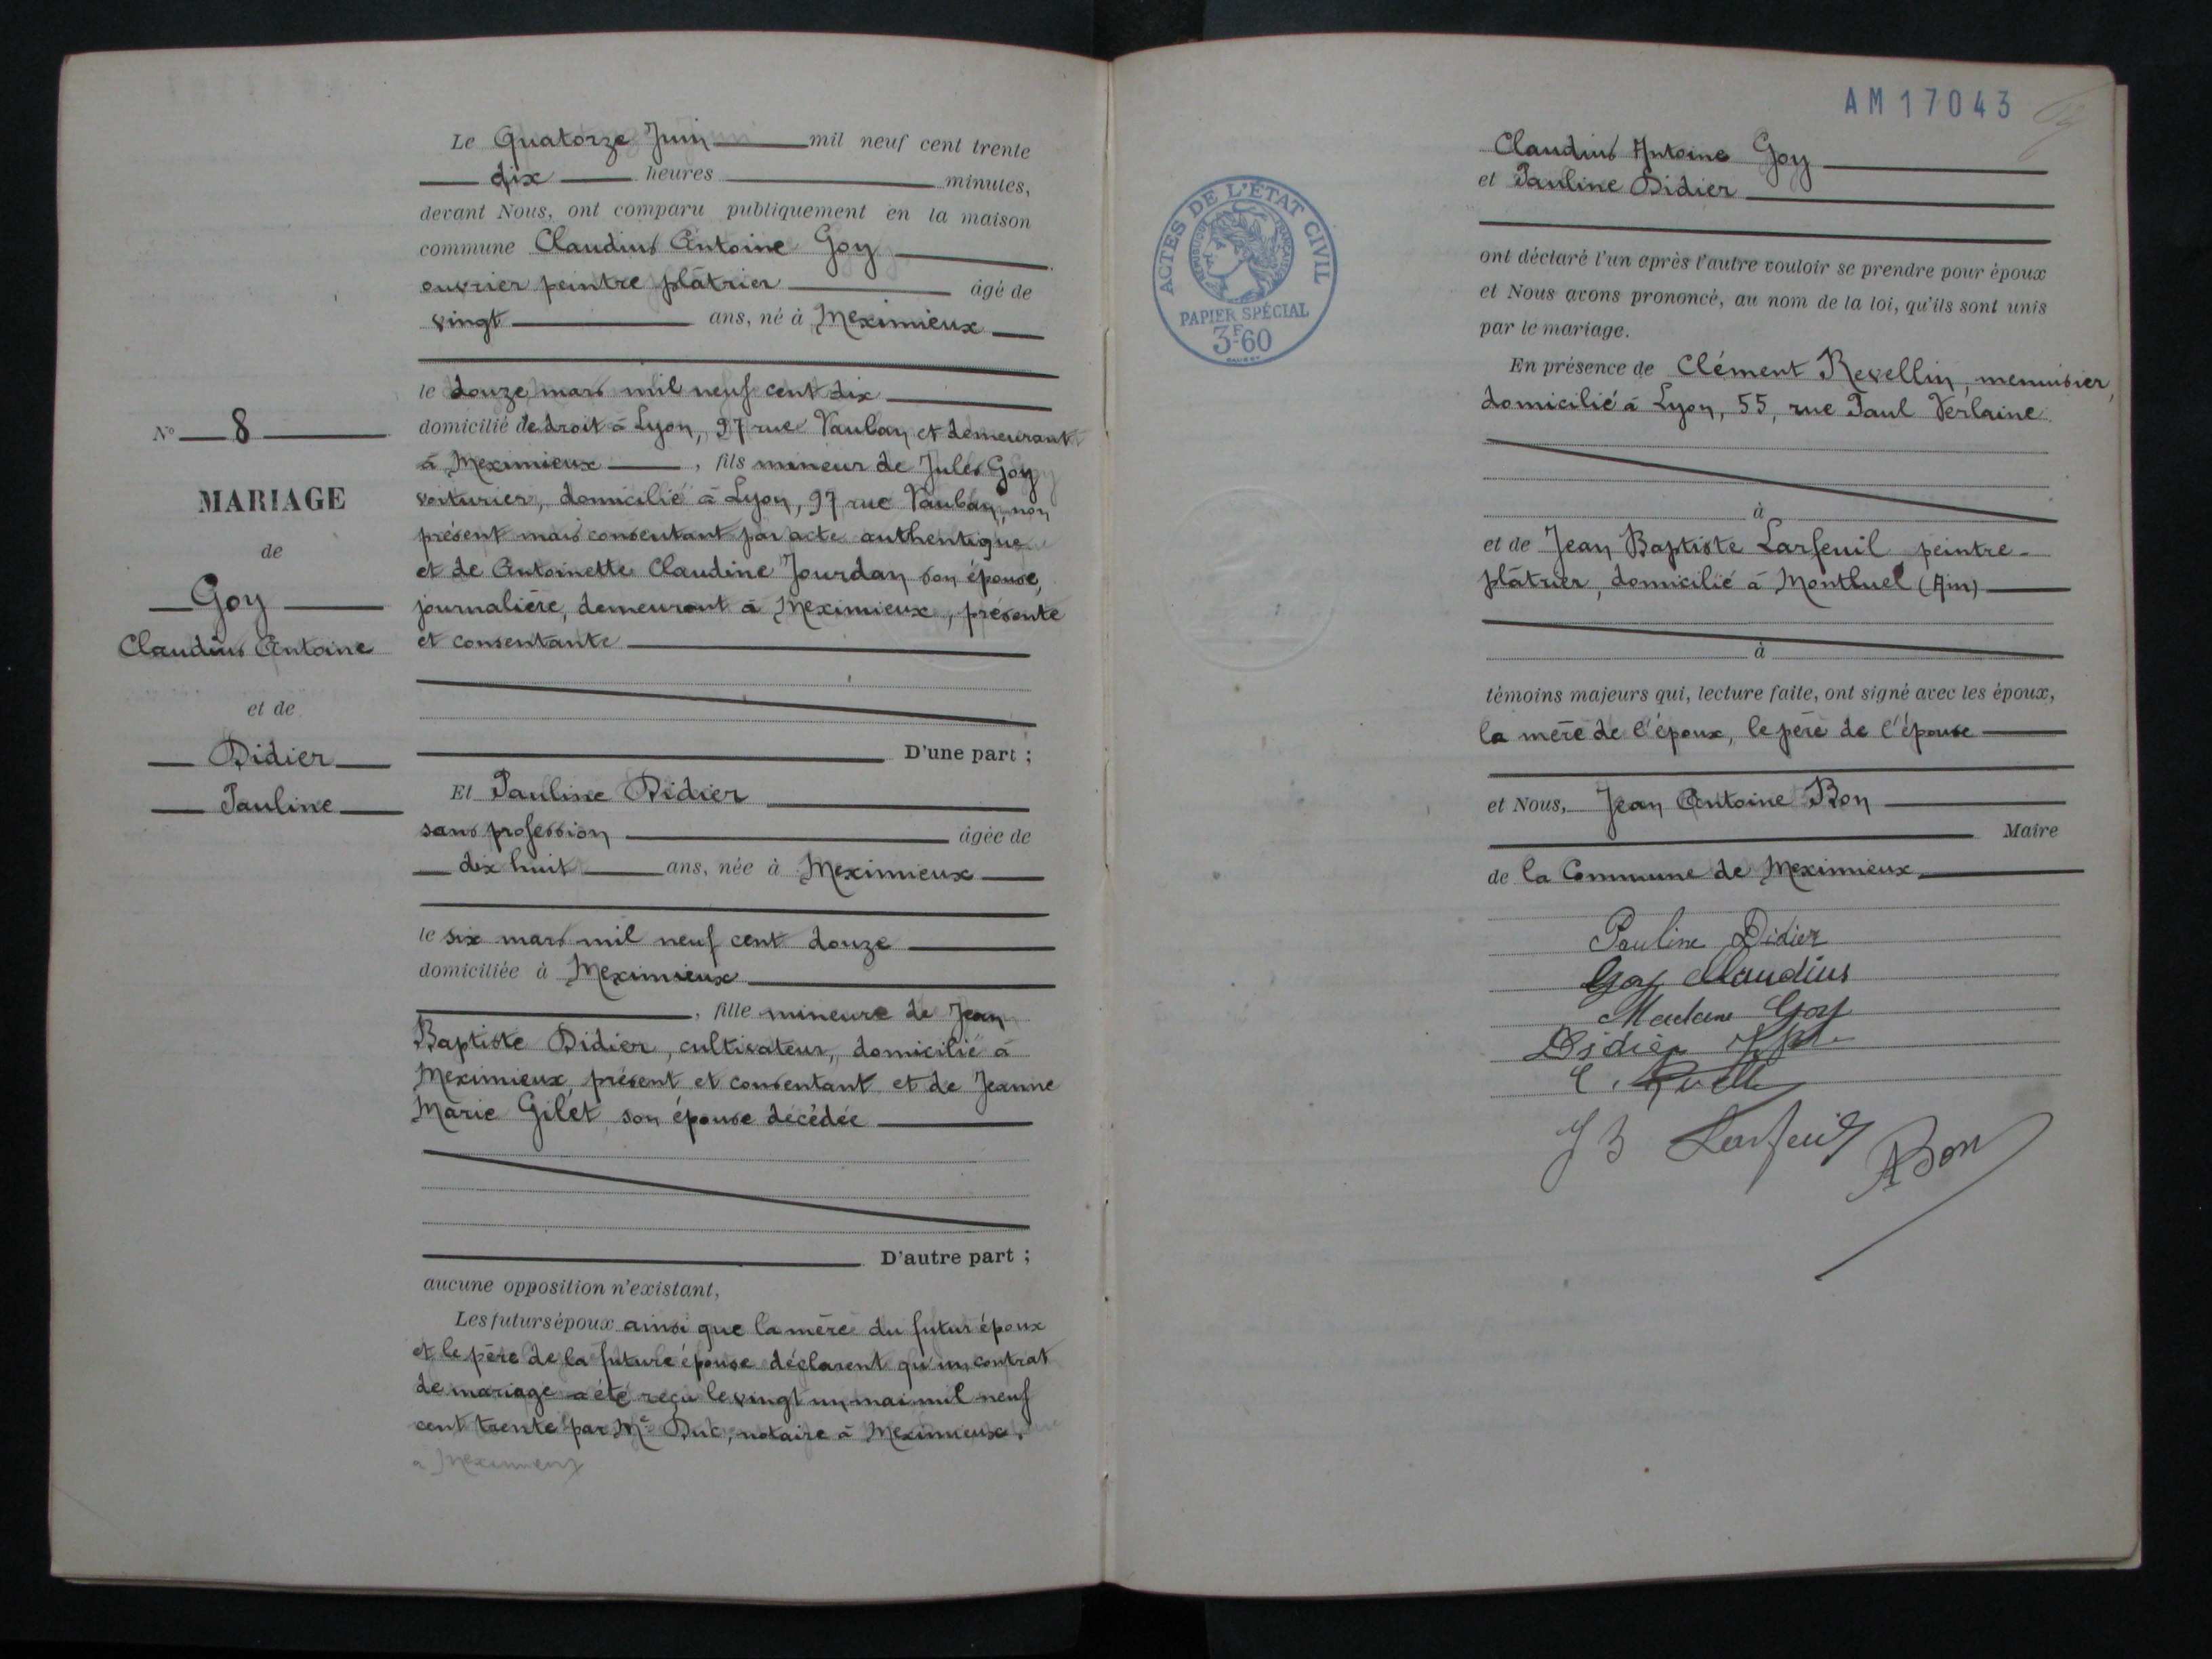 N° 8
MARIAGE
de
Goy
Claudius Antoine
et de
Didier
Pauline
Le Quatorze Juin mil neuf cent trente
dix heures minutes,
devant Nous, ont comparu publiquement en la maison
commune Claudius Antoine Goy
ouvrier peintre plâtrier âgé de
vingt ans, né à Meximieux
le douze mars mil neuf cent dix
domicilié de droit à Lyon, 97 rue Vauban et demeurant
à Meximieux, fils mineur de Jules Goy
voiturier, domicilié à Lyon, 97 rue Vauban, non
présent mais consentant par acte authentique
et de Antoinette Claudine Jourdan son épouse,
journalière, demeurant à Meximieux, présente
et consentante
D'une part ;
Et Pauline Didier
sans profession âgée de
dix huit ans, née à Meximieux
le six mars mil neuf cent douze
domiciliée à Meximieux
, fille mineure de Jean
Baptiste Didier, cultivateur, domicilié à
Meximieux, présent et consentant et de Jeanne
Marie Gilet son épouse décédée
D'autre part ;
aucune opposition n'existant,
Les futurs époux ainsi que la mère du futur époux
et le père de la future épouse déclarent qu'un contrat
de mariage a été reçu le vingt un mai mil neuf
cent trente par Me Duc, notaire à Meximieux.
à Meximieux
AM 17043
ACTES DE L'ÉTAT CIVIL
RÉPUBLIQUE FRANÇAISE
PAPIER SPÉCIAL
3F60
Claudius Antoine Goy
et Pauline Didier
ont déclaré l'un après l'autre vouloir se prendre pour époux
et Nous avons prononcé, au nom de la loi, qu'ils sont unis
par le mariage.
En présence de Clément Revellin, menuisier,
domicilié à Lyon, 55, rue Paul Verlaine
à
et de Jean Baptiste Larfeuil peintre-
plâtrier, domicilié à Montluel (Ain)
à
témoins majeurs qui, lecture faite, ont signé avec les époux,
la mère de l'époux, le père de l'épouse
et Nous, Jean Antoine Bon
Maire
de la Commune de Meximieux
Pauline Didier
Goy Claudius
Madame Goy
Didier
J B Larfeuil
ABon